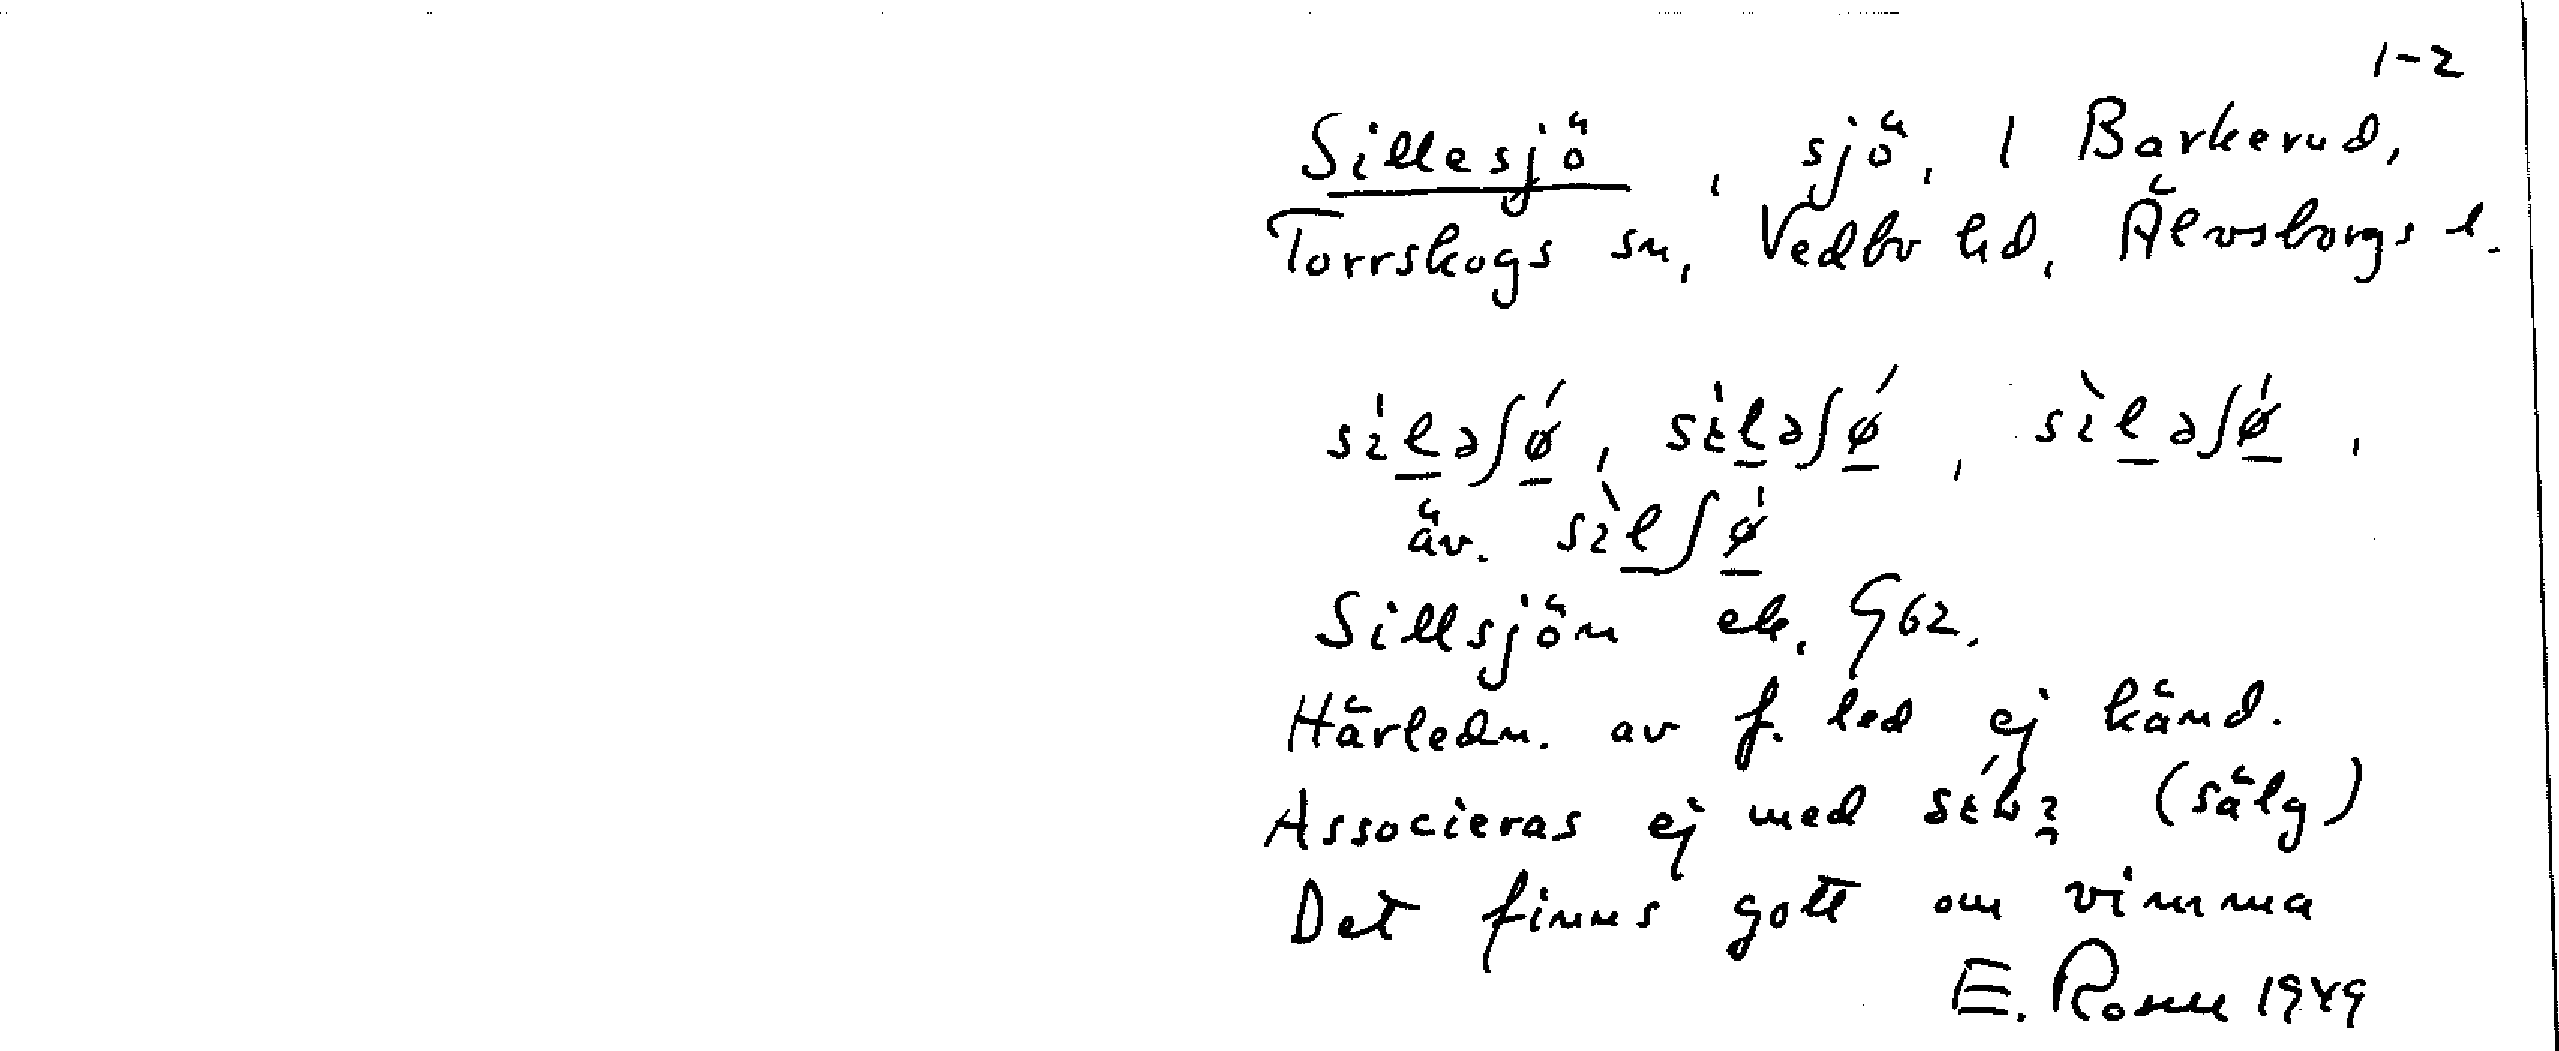 1-2
Sillesjö, sjö, 1 Barkerud,
Torrskogs sn, Vedbo hd, Älvsborgs l.
sílə∫ǿ, sílə∫ǿ, sìlə∫ǿ,
äv. sìl∫ǿ
Sillsjön ek. G62.
Härledn. av f. led ej känd.
Associeras ej med (sälg)
Det finns gott om vimma
E. Rosell 1949